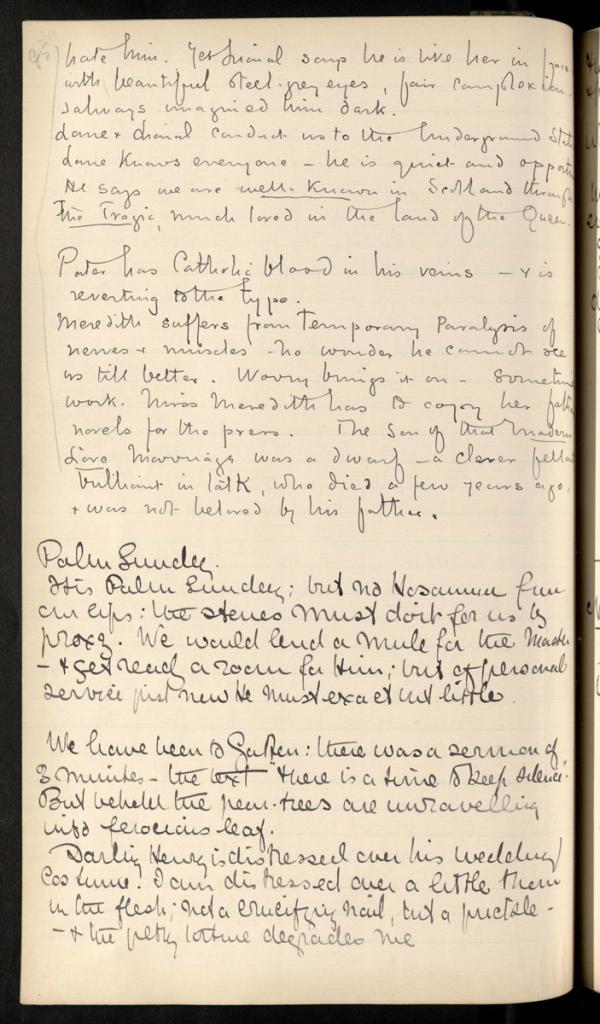 hate him. Yet Sinial says he is like her in face
with beautiful steel-grey eyes, fair complexion.
I always imagined him dark.
Lane & Sinial conduct us to the Underground Stat
Lane knows everyone – he is quiet and opport
He says we are well-known in Scotland through
The Tragic, much loved in the land of the Queen.
Pater has Catholic blood in his veins – & is
reverting to the type.
Meredith suffers from Temporary Paralysis of
nerves & muscles – no wonder he cannot see
us till better. Worry brings it on – Sometim
work. Miss Meredith has to copy her father
novels for the press. The Son of that Modern
Love Marriage was a dwarf – a clever fellow
brilliant in talk, who died a few years ago,
& was not beloved by his father.
Palm Sunday.
It is Palm Sunday; but no Hosannas from
our lips: the stones must do it for us by
proxy. We would lend a mule for the Master
– & get ready a room for Him; but of personal
service just now He must exact but little.
We have been to Gatten: there was a sermon of
3 minutes – the text "there is a time to keep silence".
But behold the pear-trees are unravelling
into ferocious leaf.
Darling Henry is distressed over his wedding
Costume. I am distressed over a little thorn
in the flesh; not a crucifying nail, but a prickle –
– & the petty torture degrades me